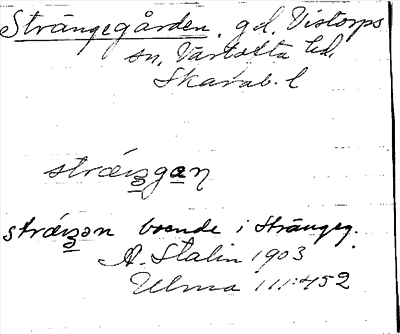 Strängegården, gd, Vistorps
sn, Vartofta hd.
Skarab. l
stræŋgan
stræŋən boende i Strängeg.
A. Stalin 1903
Ulma 111:452